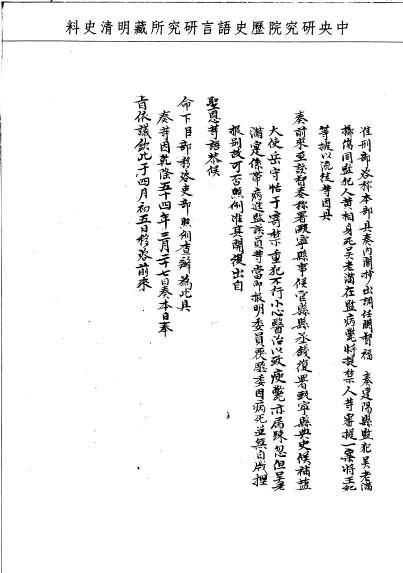 中央研究院歷史語言研究所藏明清史料
准刑部咨稱本部具奏內閣抄出調任閩督福 奏建陽縣監犯吳老滿
傷同監犯人黃相身死吳老滿在監病斃將提禁人等審擬一案將王
等擬以流杖等因具
奏前來至該督奏稱署甌寧縣事候官縣縣丞錢復署甌寧縣典史候補鹽
大使岳守怙于寄禁重犯不行小心醫治以致瘐斃亦屬疎忽但吳老
滿定係帶病進監該員等當即報明委員覆驗委因病死並無自戕捏
報別故可否照例准其開復出自
聖恩等語恭候
命下臣部移咨吏部照例查辦為此具
奏等因乾隆五十四年三月二十七日奏本日奉
旨依議欽此于四月初五日移咨前來